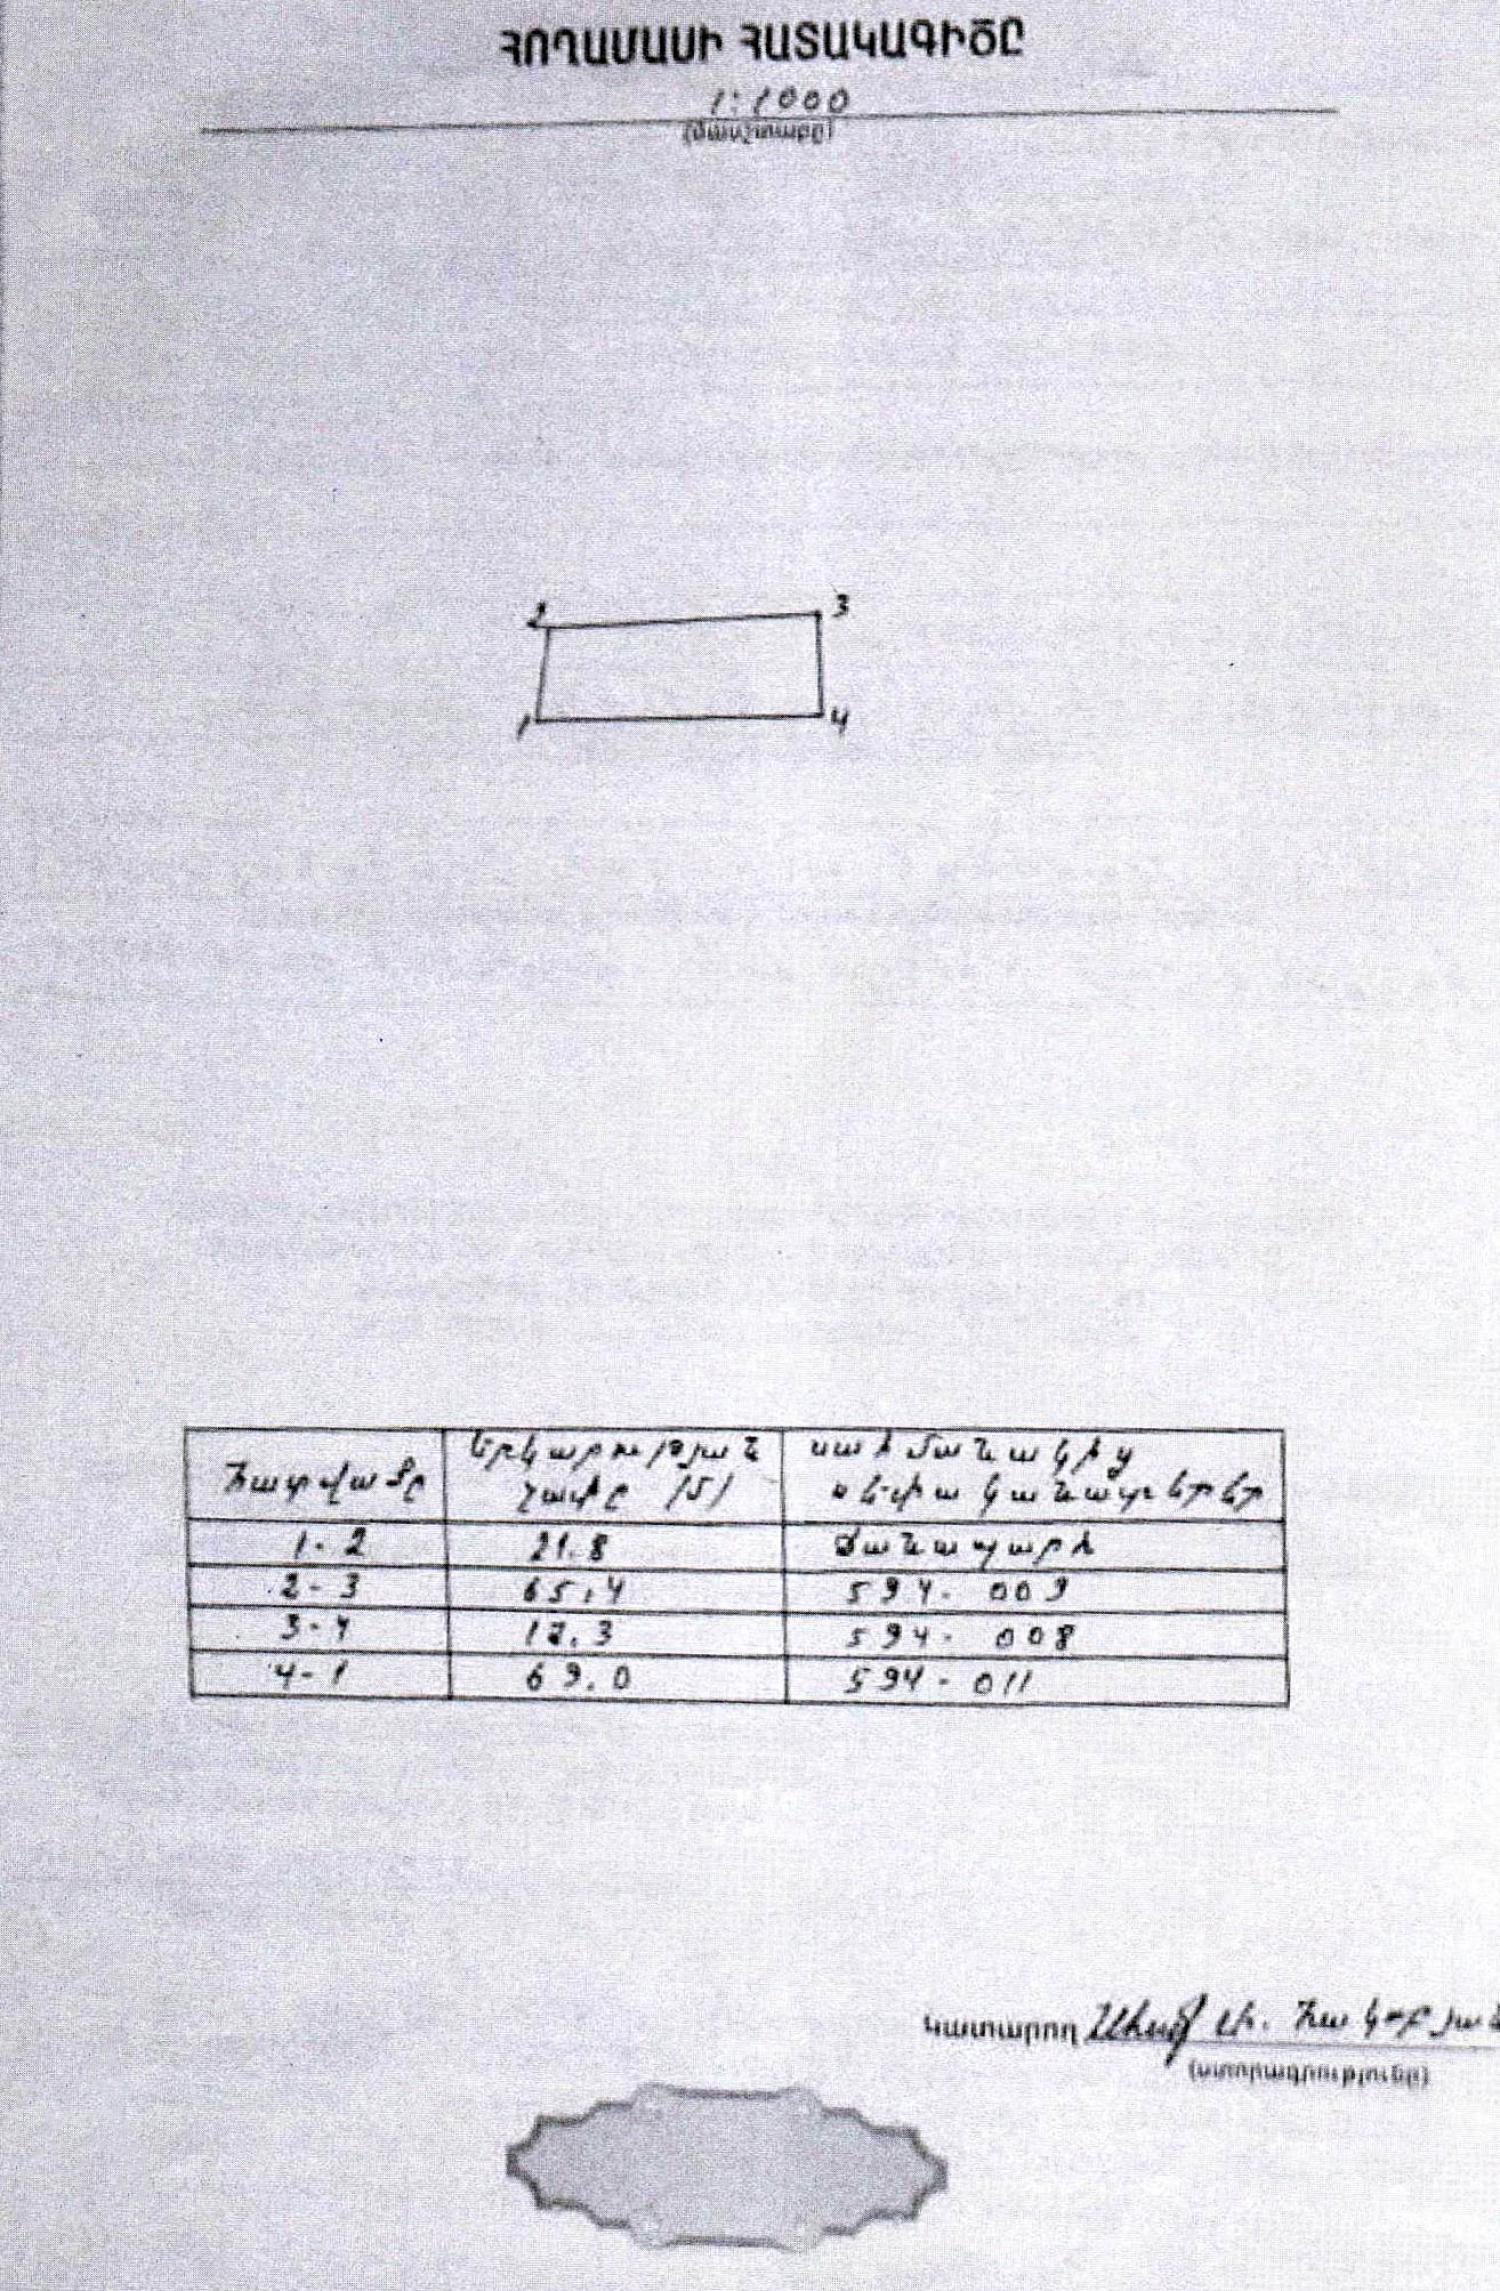 ՀՈՂԱՄԱՍԻ ՀԱՏԱԿԱԳԻԾԸ
1:1000
(մասշտաբը)
2
3
1
4
Հատվածը
երկարության
չափը /մ/
սահմանակից
սեփականատերեր
1-2 21.8 Ճանապարհ
2-3 65.4 594-009
3-4 594-008
4-1 69.0 594-011
Կատարող Ա. Հակոբյան
(ստորագրությունը)